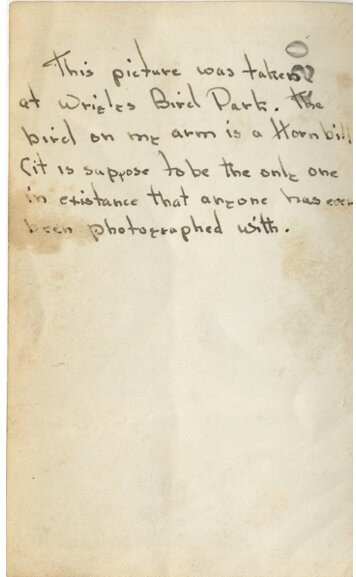 This picture was taken
at Wrigles Bird Park. The
bird on my arm is a Hornbill
(it is suppose to be the only one
in existance that anyone has ever
been photographed with.